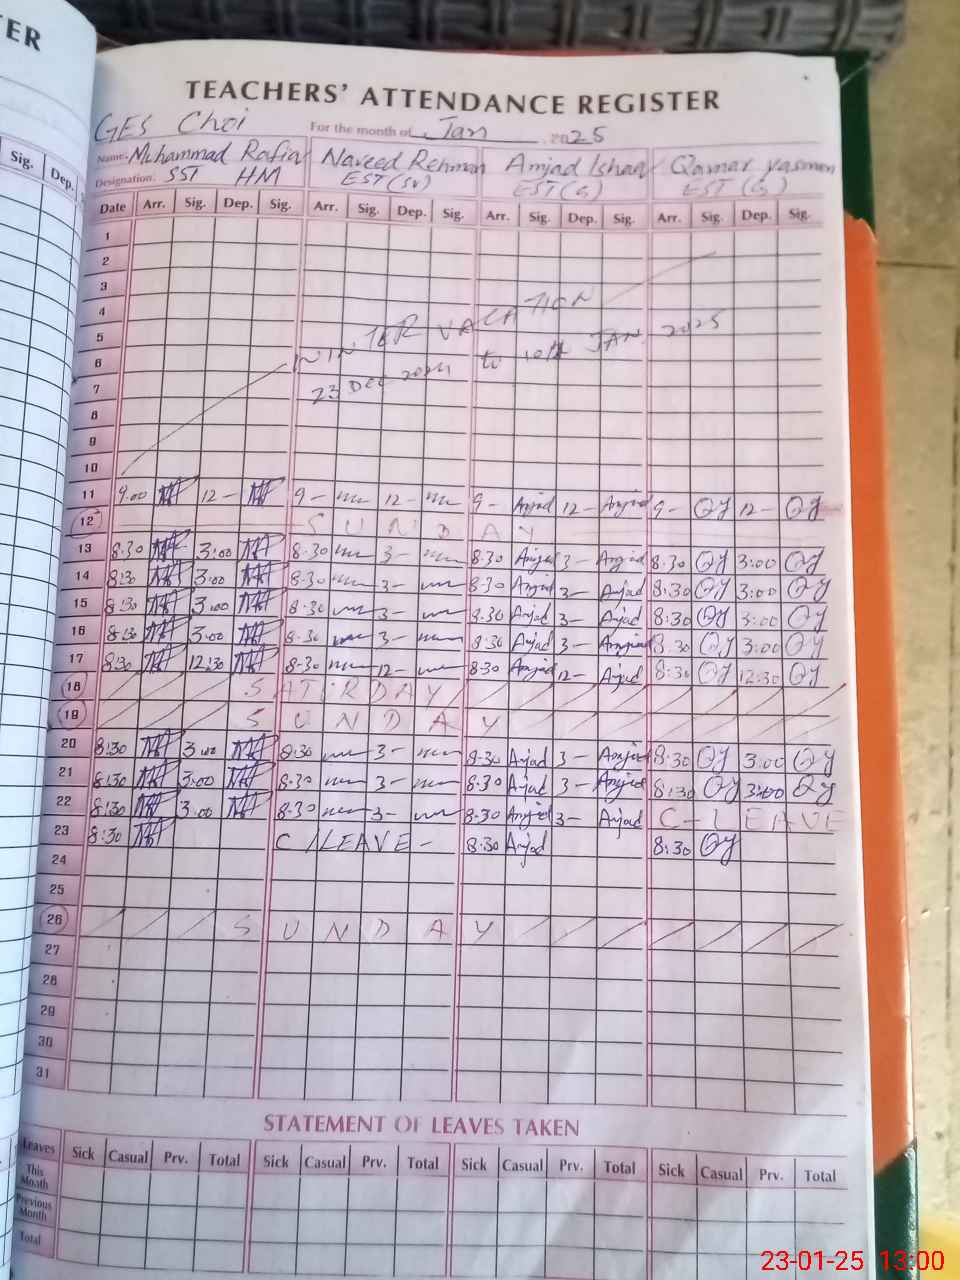 TER
TEACHERS' ATTENDANCE REGISTER
GES Choi For the month of Jan 2025
Name. Muhammad Rafiq Naveed Rehman Amjad Ishaq Qamar yasmen
Designation: SST HM EST (SV) EST (G) EST (G)
Sig. Dep.
Date Arr. Sig. Dep. Sig. Arr. Sig. Dep. Sig. Arr. Sig. Dep. Sig. Arr. Sig. Dep. Sig.
1
2
3
4
5
6
7
8
9
10
WINTER VACATION
23 Dec 2024 to 10th JAN 2025
11 9.00 12 - 9 - 12 - 9 - Amjad 12 - Amjad 9 - QY 12 - QY
12 SUNDAY
13 8.30 3:00 8.30 3 - 8.30 Amjad 3 - Amjad 8.30 QY 3:00 QY
14 8:30 3.00 8.30 3 - 8.30 Amjad 3 - Amjad 8:30 QY 3:00 QY
15 8:30 3.00 8.30 3 - 8.30 Amjad 3 - Amjad 8:30 QY 3:00 QY
16 8:30 3:00 8.30 3 - 8:30 Amjad 3 - Amjad 8.30 QY 3:00 QY
17 8:30 12:30 8.30 12 - 8.30 Amjad 12 - Amjad 8:30 QY 12:30 QY
18 SATERDAY
19 SUNDAY
20 8:30 3.00 8.30 3 - 8.30 Amjad 3 - Amjad 8:30 QY 3:00 QY
21 8:30 3:00 8.30 3 - 8.30 Amjad 3 - Amjad 8:30 QY 3:00 QY
22 8:30 3.00 8.30 3 - 8.30 Amjad 3 - Amjad C-LEAVE
23 8:30 C/LEAVE - 8.30 Amjad 8:30 QY
24
25
26 SUNDAY
27
28
29
30
31
STATEMENT OF LEAVES TAKEN
Leaves Sick Casual Prv. Total Sick Casual Prv. Total Sick Casual Prv. Total Sick Casual Prv. Total
This Month
Previous Month
Total
23-01-25 13:00